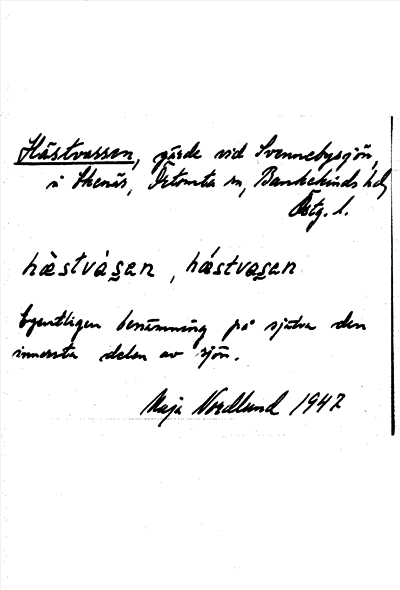 Hästvassen, gärde vid Svennebysjön,
i Skenäs, Östomta sn, Bankekinds hd,
Östg. l.
hästvàsen, hástvasen
Egentligen benämning på själva den
innersta delen av sjön.
Maja Nordlund 1947